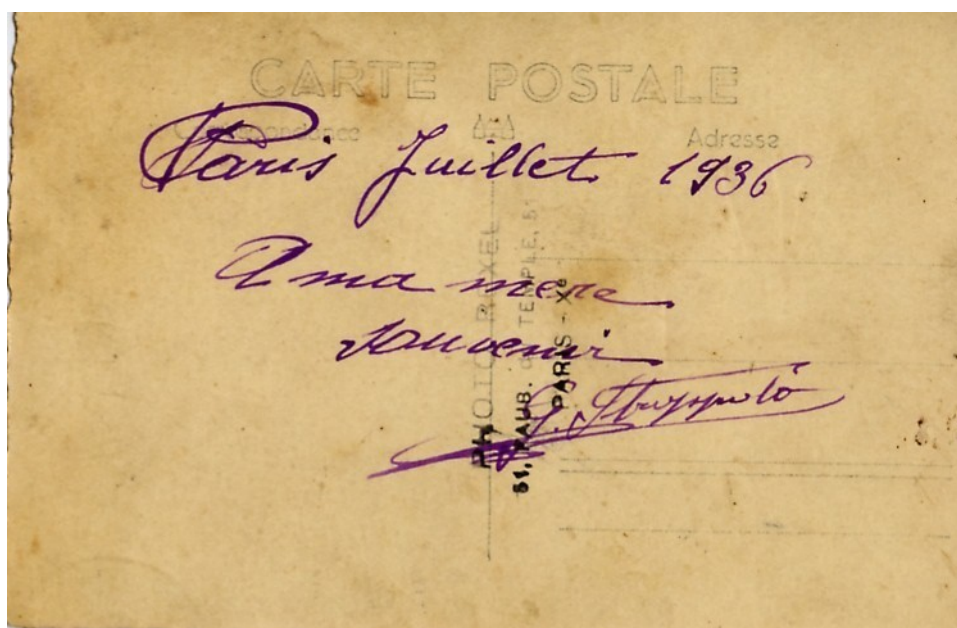 CARTE POSTALE
Correspondance
Adresse
Paris Juillet 1936
A ma mere
souvenir
PHOTO REXEL
51, FAUB. du TEMPLE, 51
PARIS - Xe